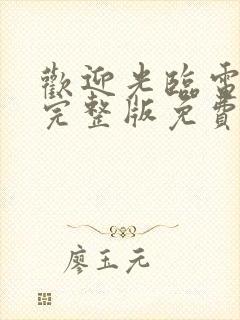 歡迎光臨電
完整版免費
廖玉元